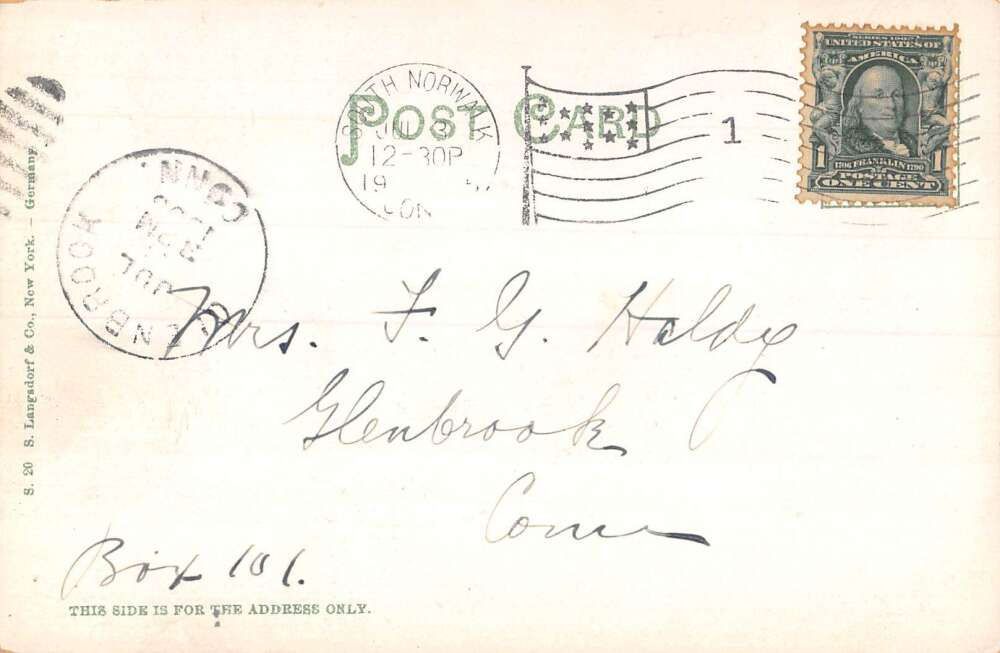 POST CARD
SOUTH NORWALK
12-30P
19
CON
1
SERIES 1902
UNITED STATES OF
AMERICA
1 1706 FRANKLIN 1790 1
POSTAGE
ONE CENT
CONN.
JUL
Mrs. F. G. Haldy
Glenbrook
Conn
Box 101.
THIS SIDE IS FOR THE ADDRESS ONLY.
S. 20 S. Langsdorf & Co., New York. – Germany.